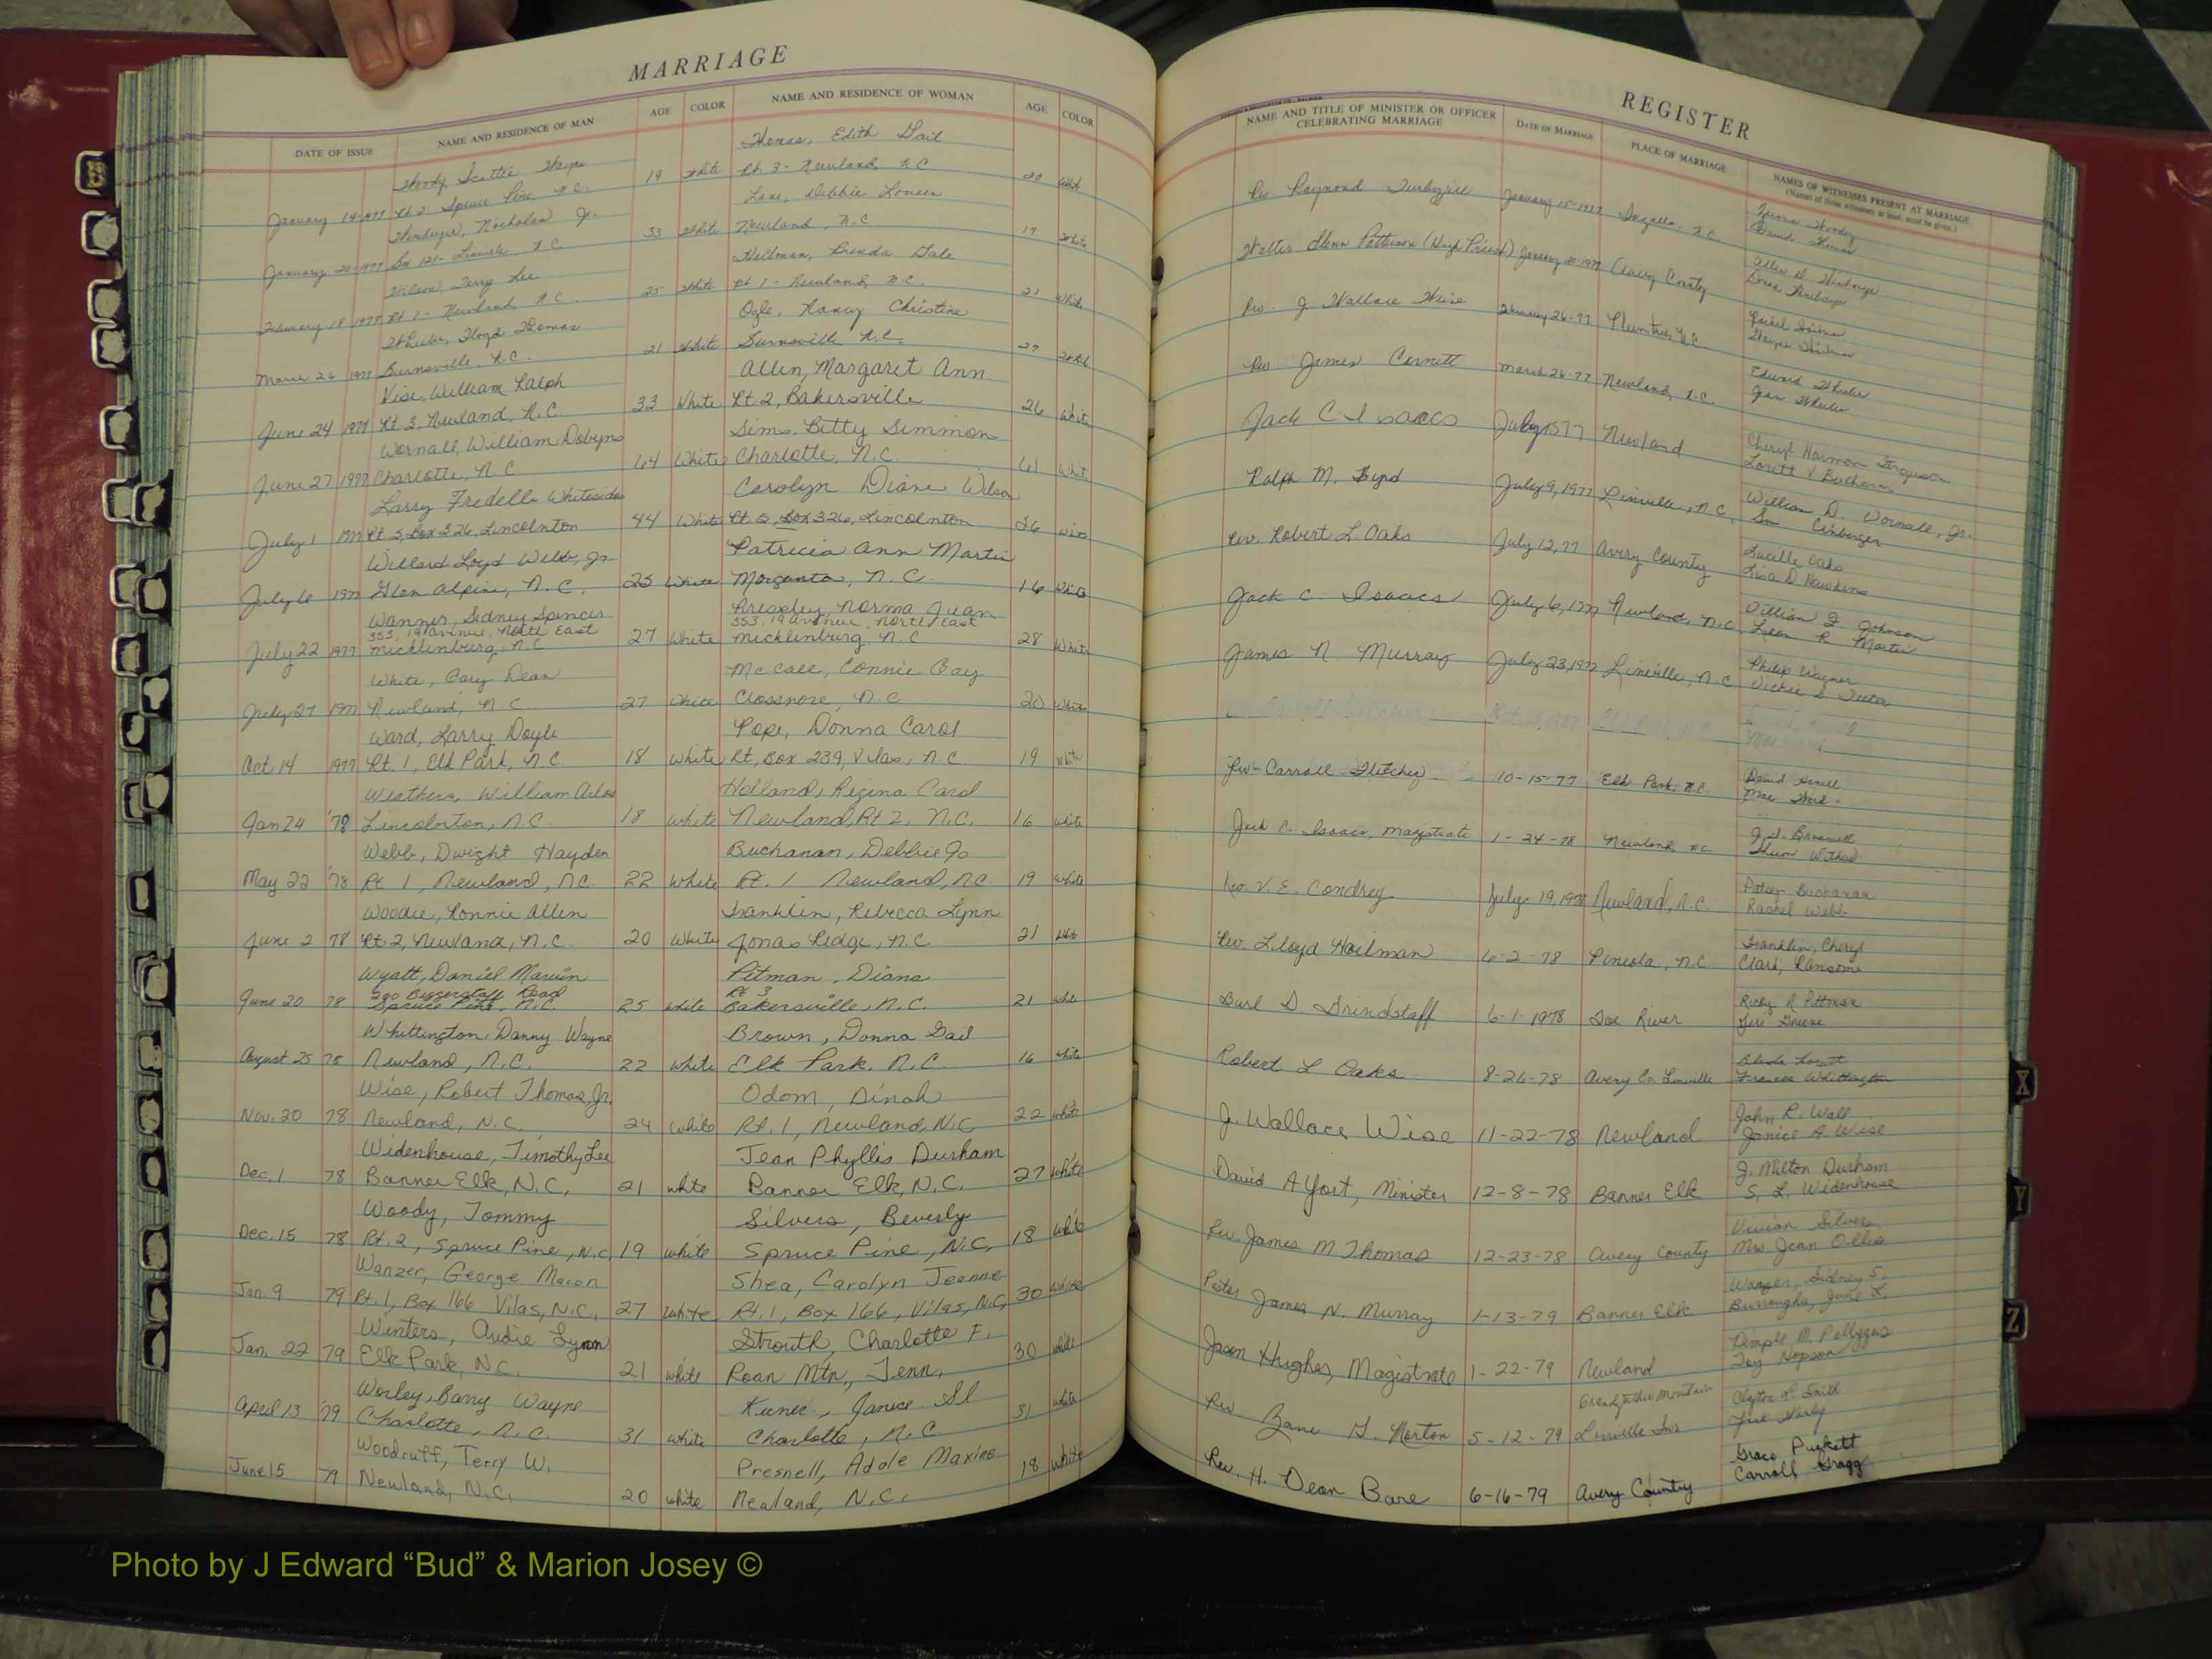 MARRIAGE
DATE OF ISSUE NAME AND RESIDENCE OF MAN AGE COLOR NAME AND RESIDENCE OF WOMAN AGE COLOR
Thomas, Edith Gail
January 14-1977 Rt 2- Spruce Pine, N.C. 19 White Rt 3- Newland, N C 20 White
Nicholas Jr. Debbie Louise
January 20-1977 Bx 121- Linville, N.C 33 White Newland, N.C 19 White
Wilson, Terry Lee Brenda Gale
February 18 1977 Rt 1- Newland N.C. 25 White Rt 1- Newland, N.C. White
Wheeler, Floyd Thomas Ogle, Nancy Christine
March 26 1977 Burnsville, N.C. 21 White Burnsville N.C. White
Vise, William Ralph Allen, Margaret Ann
June 24 1977 Rt 3, Newland, N.C. 33 White Rt 2, Bakersville 26 White
Wornall, William Dobyns Sims, Betty Simmons
June 27 1977 Charlotte, N.C. 64 White Charlotte, N.C. 61 White
Larry Fredelle Whitesides Carolyn Diane Wilson
July 1 1977 Rt 5, Box 326, Lincolnton 44 White Rt. 5, Box 326, Lincolnton 36 White
Willard Loyd Webb, Jr. Patricia Ann Martin
July 6 1977 Glen Alpine, N.C. 25 White Morganton, N.C. 16 White
Wanner, Sidney Spencer Norma Jean
353, 19 avenue, North East 353, 19 avenue, North East
July 22 1977 Mecklinburg, N.C. 27 White Mecklinburg, N.C 28 White
White, Gary Dean McCall, Connie Gay
July 27 1977 Newland, N.C 27 White Crossnore, N.C 20 White
Ward, Larry Doyle Pope, Donna Carol
Oct 14 1977 Rt. 1, Elk Park, N.C. 18 White Rt, Box 239, Vilas, N.C 19 White
Weathers, William Holland, Regina Carol
Jan 24 '78 Lincolnton, N.C. 18 White Newland, Rt 2, N.C. 16 White
Webb, Dwight Hayden Buchanan, Debbie Jo
May 22 '78 Rt 1, Newland, N.C. 22 White Rt. 1 Newland, NC 19 White
Woodie, Ronnie Allen Franklin, Rebecca Lynn
June 2 78 Rt 2, Newland, N.C. 20 White Jonas Ridge, N.C 21 White
Wyatt, Daniel Marvin Pitman, Diana
Road Rt 3
June 20 78 Spruce Pine, N.C. 25 White Bakersville, N.C. 21 White
Whittington, Danny Wayne Brown, Donna Gail
August 25 78 Newland, N.C. 22 White Elk Park, N.C. 16 White
Wise, Robert Thomas, Jr. Odom, Dinah
Nov. 20 78 Newland, N.C. 24 White Rt. 1, Newland, N.C 22 White
Widenhouse, Timothy Lee Jean Phyllis Durham
Dec. 1 78 Banner Elk, N.C. 21 white Banner Elk, N.C. 27 white
Woody, Tommy Silvers, Beverly
Dec. 15 78 Rt. 2, Spruce Pine, N.C. 19 white Spruce Pine, N.C. 18 white
Wanzer, George Macon Shea, Carolyn Jeanne
Jan. 9 79 Rt. 1, Box 166 Vilas, N.C. 27 white Rt. 1, Box 166, Vilas, N.C. 30 white
Winters, Audie Lynn Strouth, Charlotte F.
Jan. 22 79 Elk Park, N.C. 21 white Roan Mtn, Tenn. 30 white
Worley, Barry Wayne Janice
April 13 '79 Charlotte, N.C. 31 white Charlotte, N.C 31 white
Woodruff, Terry W. Presnell, Adole Maxine
June 15 79 Newland, N.C. 20 white Newland, N.C. 18 white
REGISTER
NAME AND TITLE OF MINISTER OR OFFICER CELEBRATING MARRIAGE DATE OF MARRIAGE PLACE OF MARRIAGE NAMES OF WITNESSES PRESENT AT MARRIAGE
(Names of three witnesses, at least, must be given.)
Rev Raymond January 15-1977 Ingalls, N.C.
Walter Glenn Patterson (High Priest) January 20-1977 Avery County
Rev. J. Wallace Wise February 26-77 Plumtree, N.C.
Rev James Cornett March 26-77 Newland, N.C. Edward Wheeler
Jack C Isaacs July 1 1977 Newland Cheryl Harmon Ferguson
Lorett V Buchanan
Ralph M. Byrd July 9, 1977 Linville, N.C. William D. Wornall, Jr.
Rev. Robert L. Oaks July 12, 77 Avery County Lucille Oaks
Lisa D Hawkins
Jack C. Isaacs July 6, 1977 Newland, N.C. William J. Johnson
Leen R Martin
James N. Murray July 23, 1977 Linville, N.C Philip Wagner
Vickie S
Rev- Carroll Fletcher 10-15-77 Elk Park, N.C. David
Mae Ward
Jack C. Isaacs, magistrate 1-24-78 Newland N.C.
Rev. V. E. Condrey July 19, 1978 Newland, N.C. Patsy Buchanan
Rachel Webb
Rev. Lloyd Hoilman 6-2-78 Pineola, N.C Franklin, Cheryl
Clark, Ransome
Burl D. Grindstaff 6-1-1978 Toe River Ricky R Pittman
Teri Greene
Robert L Oaks 8-26-78 Avery Co. Linville
Frances Whittington
J. Wallace Wise 11-22-78 Newland John R. Wall
Janice A. Wise
David A Yost, Minister 12-8-78 Banner Elk J. Milton Durham
S. L. Widenhouse
Rev. James M Thomas 12-23-78 Avery County Vivian Silvers
Mrs. Jean Ollis
Pastor James N. Murray 1-13-79 Banner Elk Wanzer, Sidney S.
Burroughs, Jane L.
Jason Hughes, Magistrate 1-22-79 Newland Dimple M.
Hopson
Grandfather Mountain
Rev Zane G. Norton 5-12-79 Linville Clayton L. Smith
Rev. H. Dean Bare 6-16-79 Avery Country Grace Puckett
Carroll Gragg
X
Y
Z
Photo by J Edward “Bud” & Marion Josey ©